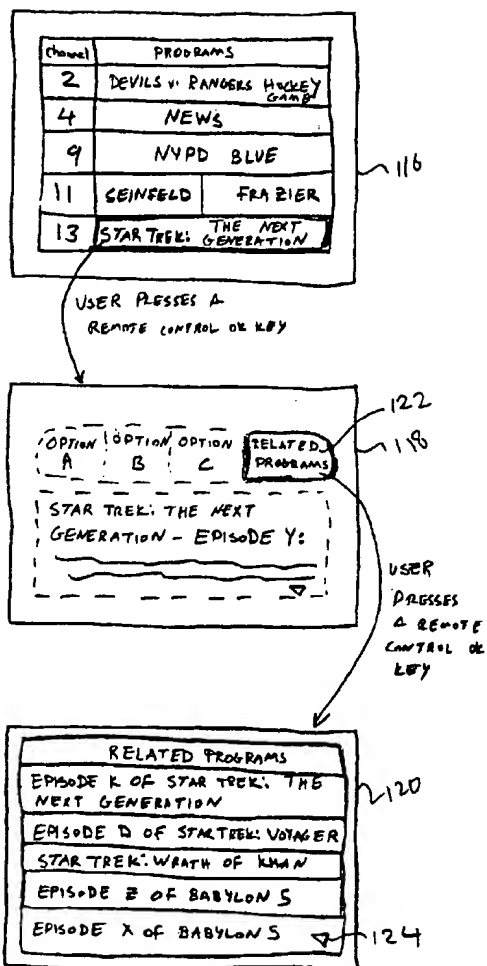 Channel PROGRAMS
2 DEVILS v. RANGERS HOCKEY GAME
4 NEWS
9 NYPD BLUE
11 SEINFELD FRAZIER
13 STAR TREK: THE NEXT GENERATION
116
USER PRESSES A
REMOTE CONTROL OK KEY
122
118
OPTION A OPTION B OPTION C RELATED PROGRAMS
STAR TREK: THE NEXT
GENERATION - EPISODE Y:
USER
PRESSES
A REMOTE
CONTROL OK
KEY
RELATED PROGRAMS
EPISODE K OF STAR TREK: THE
NEXT GENERATION
120
EPISODE D OF STAR TREK: VOYAGER
STAR TREK: WRATH OF KHAN
EPISODE Z OF BABYLON 5
EPISODE X OF BABYLON 5
124